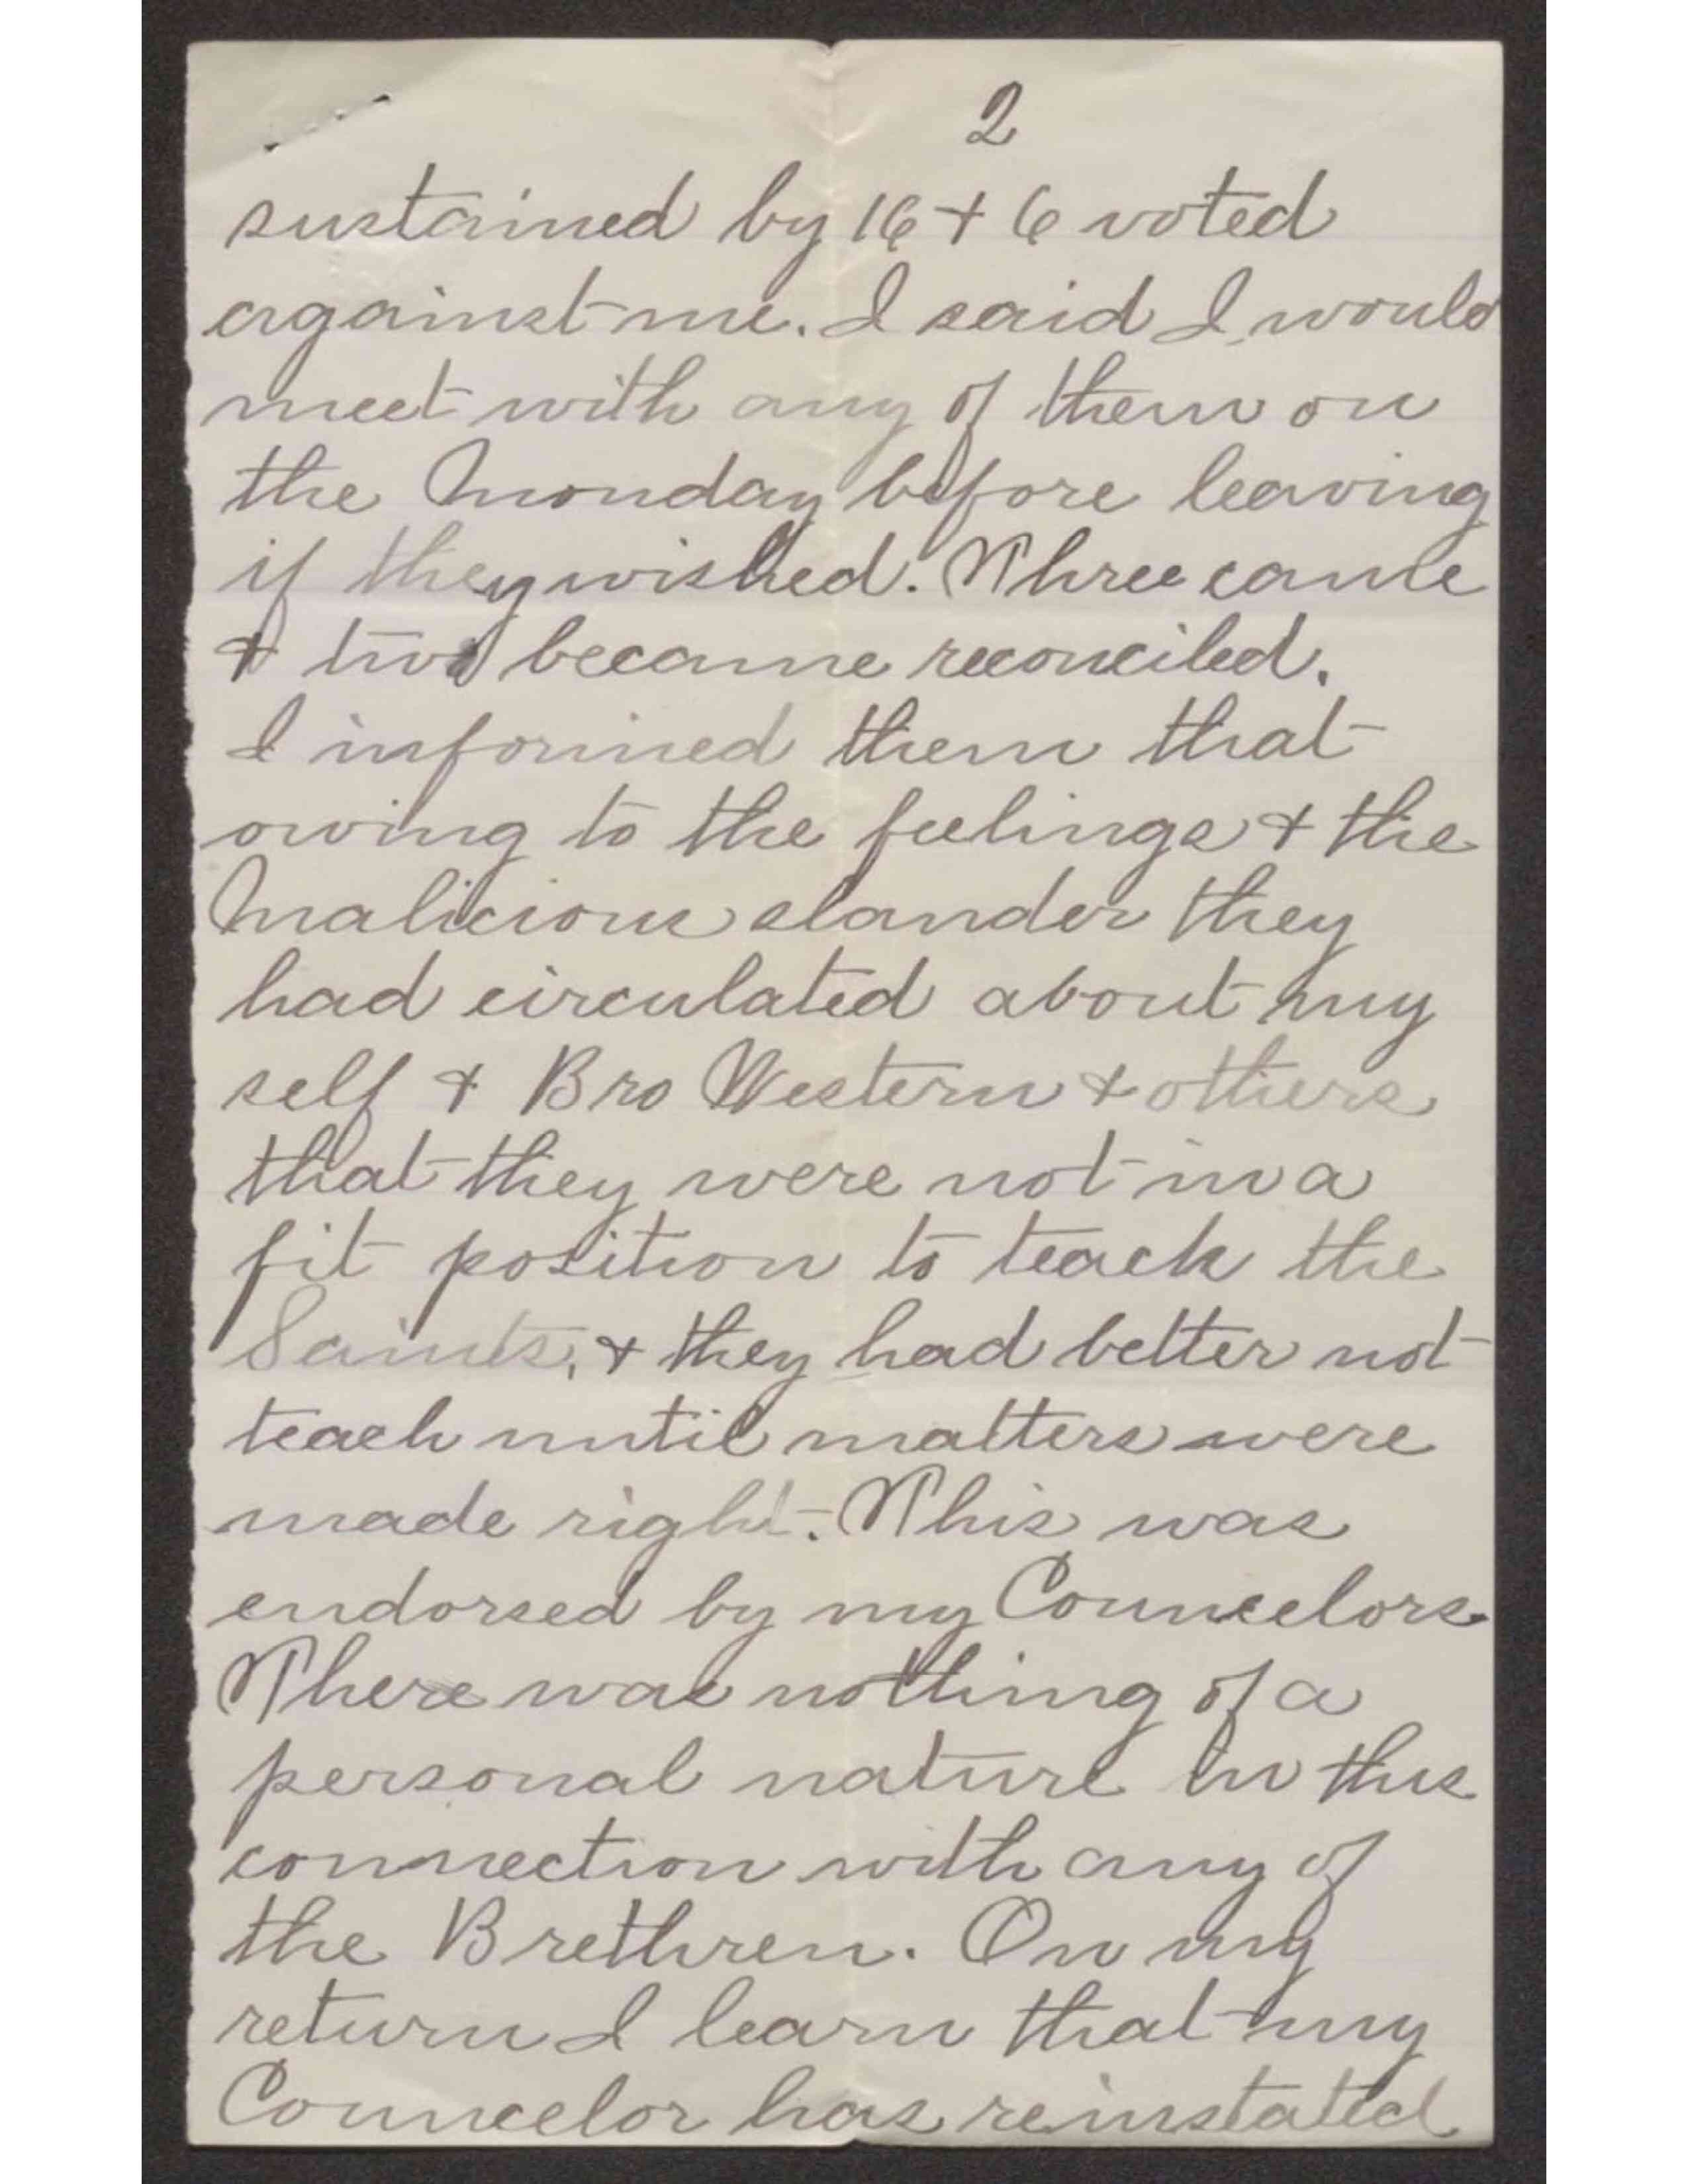 2
sustained by 16 + 6 voted
against me. I said I would
meet with any of them on
the Monday before leaving
if they wished. Three came
+ two became reconciled.
I informed them that
owing to the feelings + the
Malicious slander they
had circulated about my
self + Bro Western + others
that they were not in a
fit position to teach the
Saints, + they had better not
teach until matters were
made right. This was
endorsed by my Councelors.
There was nothing of a
personal nature in this
connection with any of
the Brethren. On my
return I learn that my
Councelor has reinstated